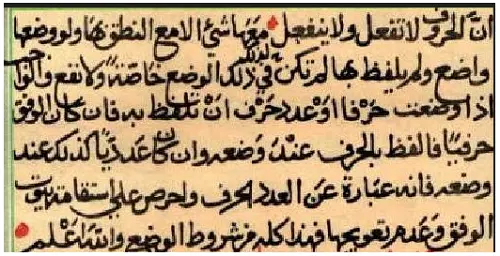 ان الحروف لا تفعل ولا ينفعل معها شئ الا مع النطق بها ولو وضعها
واضع ولم يلفظ بها لم تكن في ذلك الوضع خاصة ولا نفع والواجب
اذا وضعت حرفا او عدد حرف ان تلفظ به فان كان الوفق
حرفيا فالفظ بالحرف عند وضعه وان كان عدديا كذلك عند
وضعه فانه عبارة عن العدد الحرف واحرص على استقامة بيوت
الوفق وعدم تعويجها فهذا كله من شروط الوضع والله اعلم